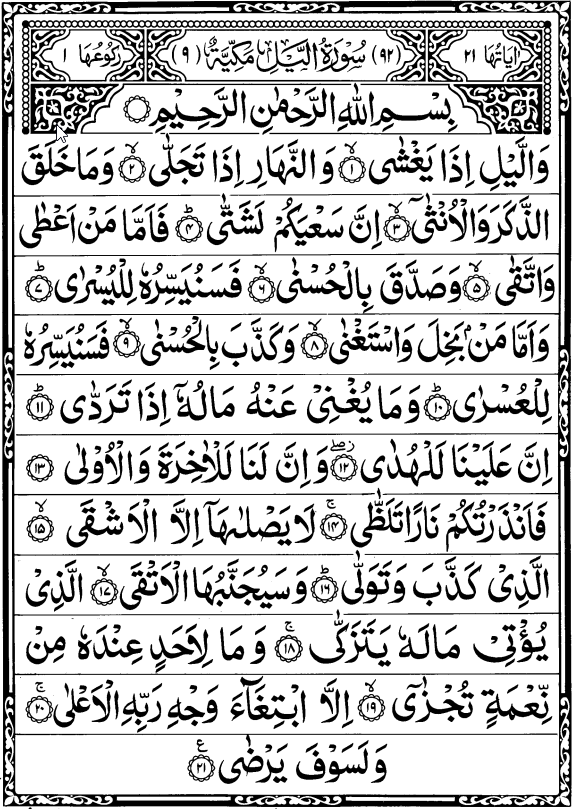 اٰیَاتُهَا ٢١ (٩٢) سُوْرَةُ الَّيْلِ مَكِّيَّةٌ (٩) رُكُوْعُهَا ١
بِسْمِ اللّٰهِ الرَّحْمٰنِ الرَّحِيْمِ
وَالَّيْلِ اِذَا يَغْشٰى ۙ﴿١﴾ وَالنَّهَارِ اِذَا تَجَلّٰى ۙ﴿٢﴾ وَمَا خَلَقَ
الذَّكَرَ وَالْاُنْثٰٓى ۙ﴿٣﴾ اِنَّ سَعْيَكُمْ لَشَتّٰى ؕ﴿٤﴾ فَاَمَّا مَنْ اَعْطٰى
وَاتَّقٰى ۙ﴿٥﴾ وَصَدَّقَ بِالْحُسْنٰى ۙ﴿٦﴾ فَسَنُيَسِّرُهٗ لِلْيُسْرٰى ؕ﴿٧﴾
وَاَمَّا مَنْۢ بَخِلَ وَاسْتَغْنٰى ۙ﴿٨﴾ وَكَذَّبَ بِالْحُسْنٰى ۙ﴿٩﴾ فَسَنُيَسِّرُهٗ
لِلْعُسْرٰى ؕ﴿١٠﴾ وَمَا يُغْنِيْ عَنْهُ مَالُهٗٓ اِذَا تَرَدّٰى ؕ﴿١١﴾
اِنَّ عَلَيْنَا لَلْهُدٰى ۖ﴿١٢﴾ وَاِنَّ لَنَا لَلْاٰخِرَةَ وَالْاُوْلٰى ﴿١٣﴾
فَاَنْذَرْتُكُمْ نَارًا تَلَظّٰى ۚ﴿١٤﴾ لَا يَصْلٰىهَآ اِلَّا الْاَشْقَى ۙ﴿١٥﴾
الَّذِيْ كَذَّبَ وَتَوَلّٰى ؕ﴿١٦﴾ وَسَيُجَنَّبُهَا الْاَتْقَى ۙ﴿١٧﴾ الَّذِيْ
يُؤْتِيْ مَالَهٗ يَتَزَكّٰى ۚ﴿١٨﴾ وَمَا لِاَحَدٍ عِنْدَهٗ مِنْ
نِّعْمَةٍ تُجْزٰٓى ۙ﴿١٩﴾ اِلَّا ابْتِغَآءَ وَجْهِ رَبِّهِ الْاَعْلٰى ۚ﴿٢٠﴾
وَلَسَوْفَ يَرْضٰى ﴿٢١﴾ ع